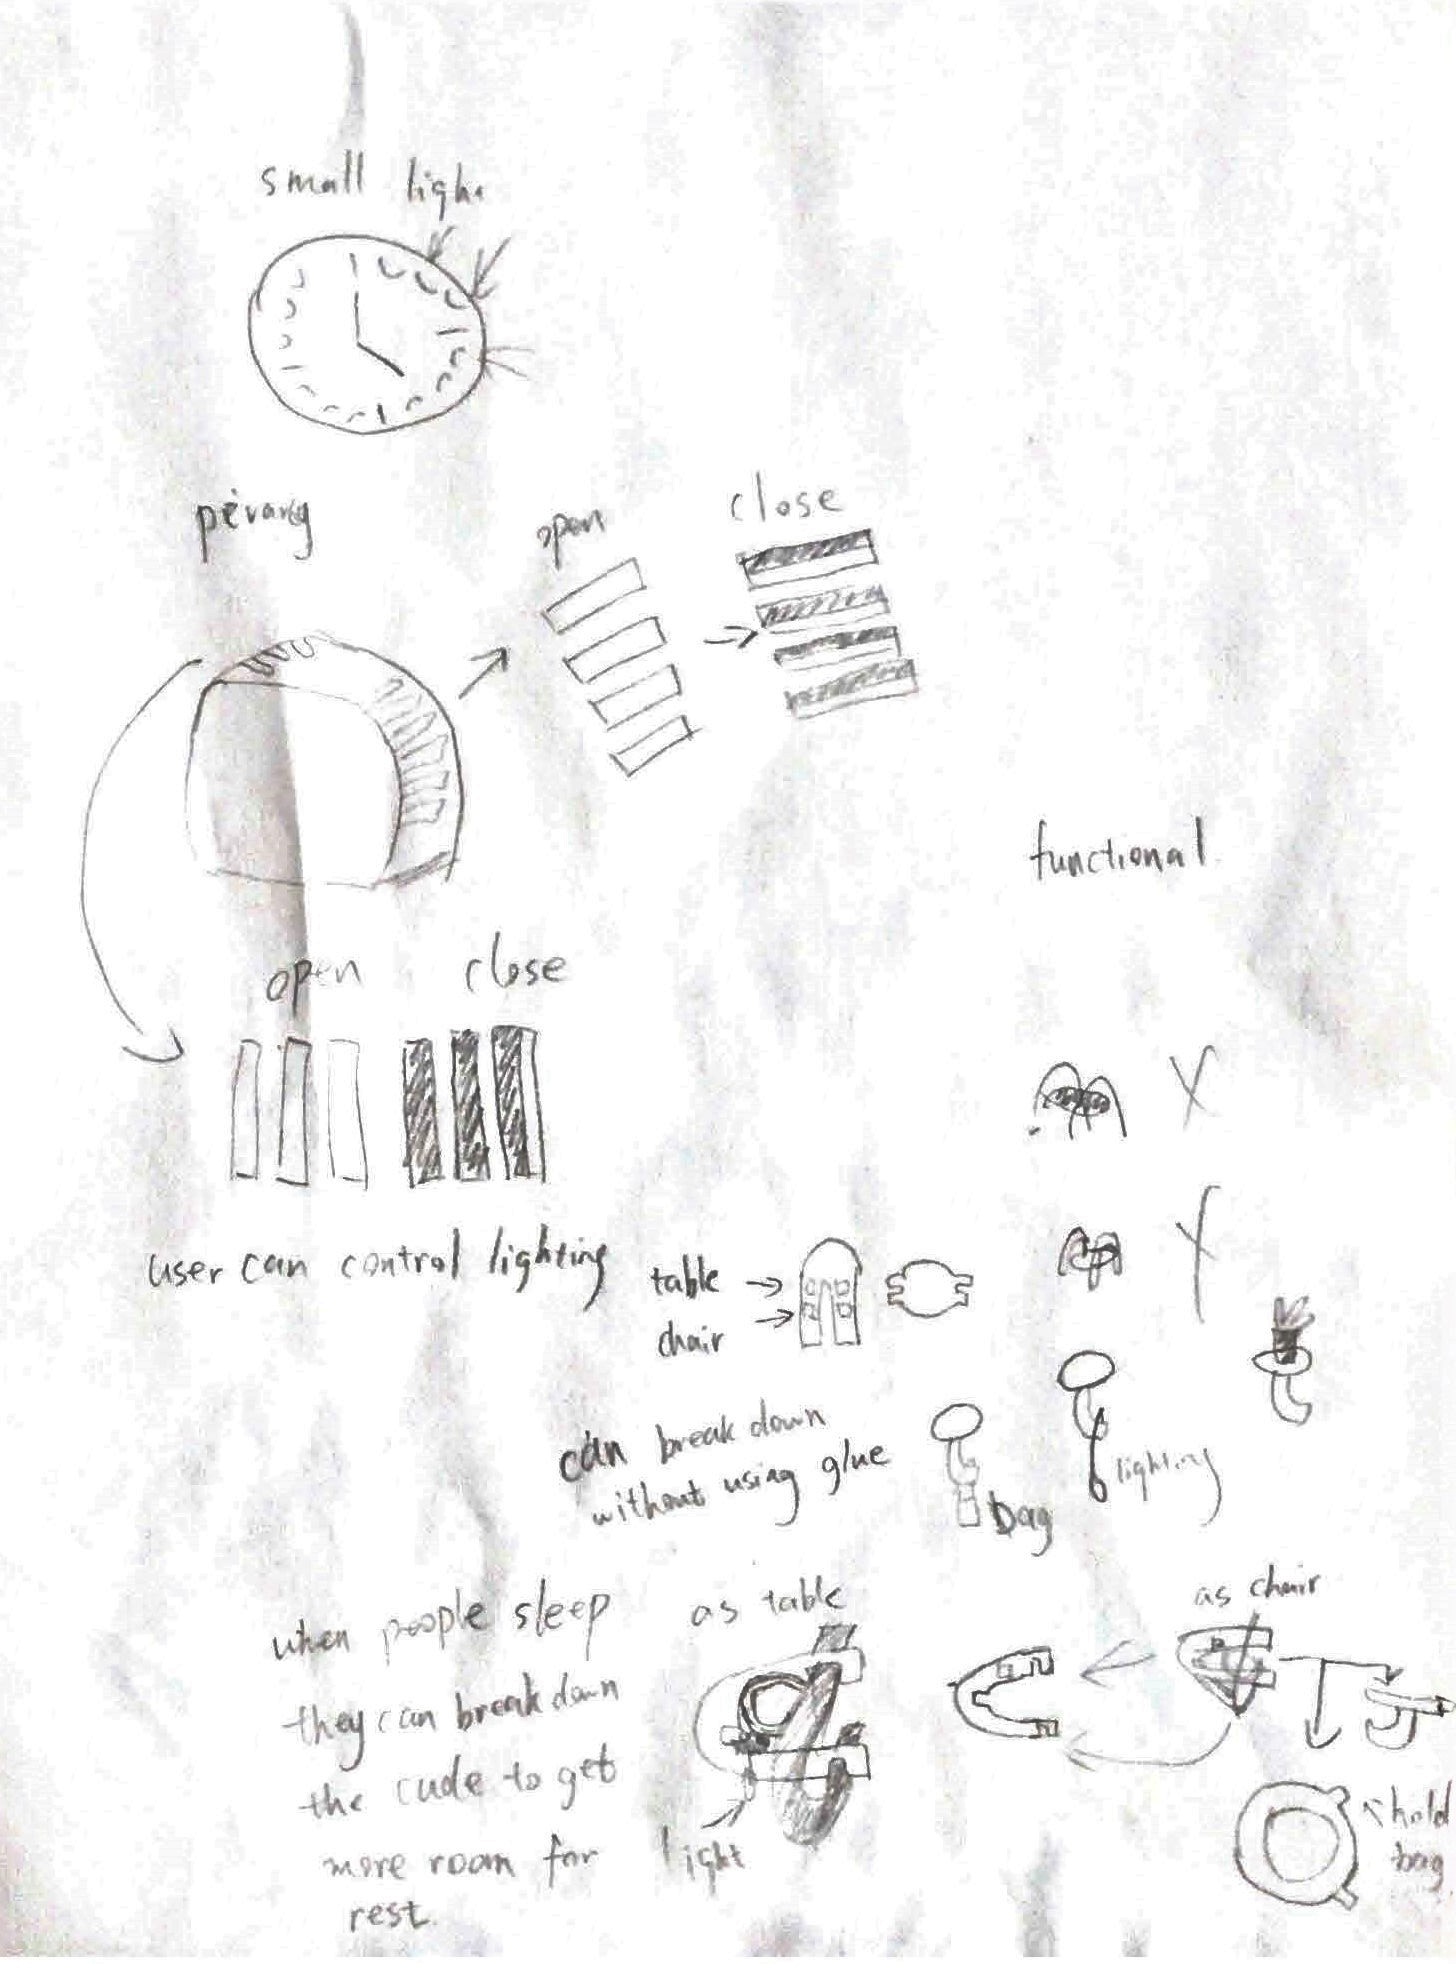 small light
open
close
functional
open
close
user can control lighting
table
chair
can break down
without using glue
lighting
bag
as chair
when people sleep
they can break down
the cude to get
more room for
rest.
as table
light
hold
bag